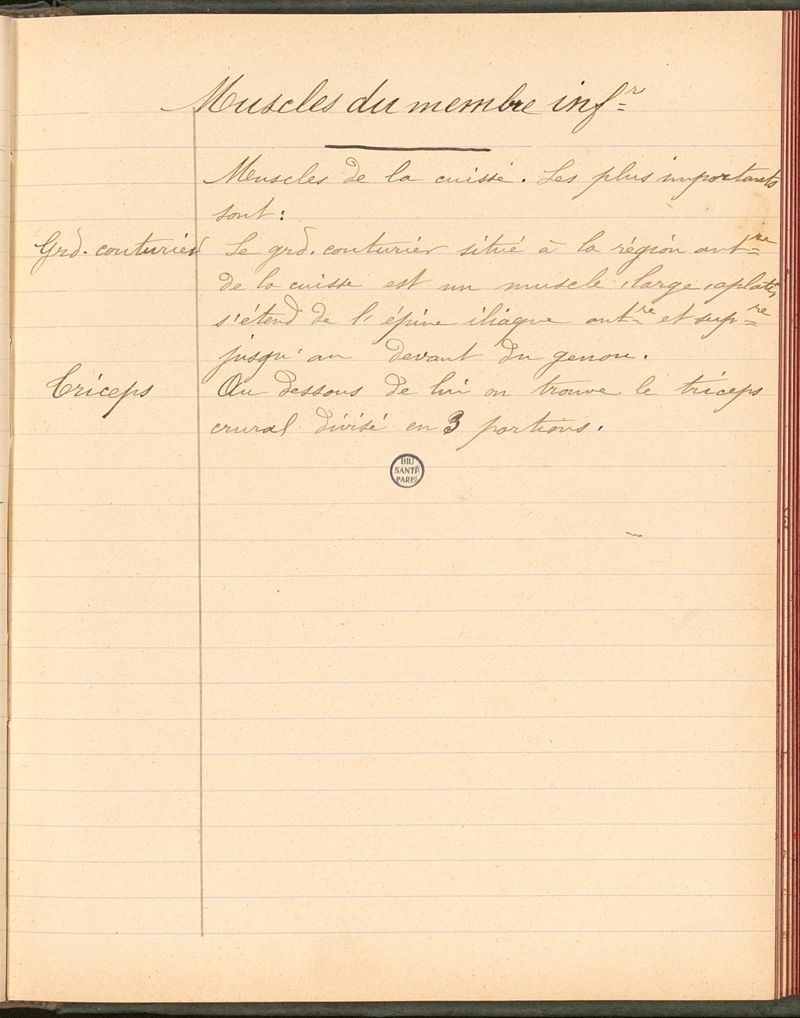 Muscles du membre infr
Muscles de la cuisse. Les plus importants
sont:
Grd. couturier
Le grd. couturier situé à la région antre
de la cuisse est un muscle, large, aplati,
s'étend de l'épine iliaque antre et supre
jusqu'au devant du genou.
Triceps
Au dessous de lui on trouve le triceps
crural divisé en 3 portions.
BIU
SANTÉ
PARIS